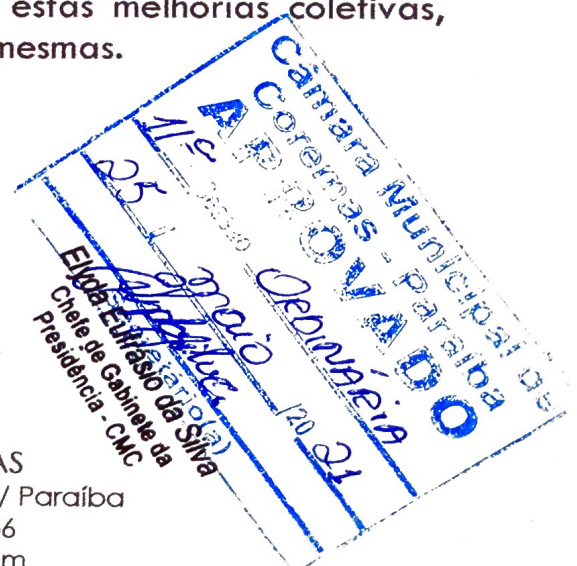 estas melhorias coletivas,
mesmas.
Câmara Municipal de
Coremas - Paraíba
APROVADO
11ª Sessão ORDINÁRIA
25 / maio /20 21
Secretário(a)
Elyda Eufrásio da Silva
Chefe de Gabinete da
Presidência - CMC
AS
/ Paraíba
6
m